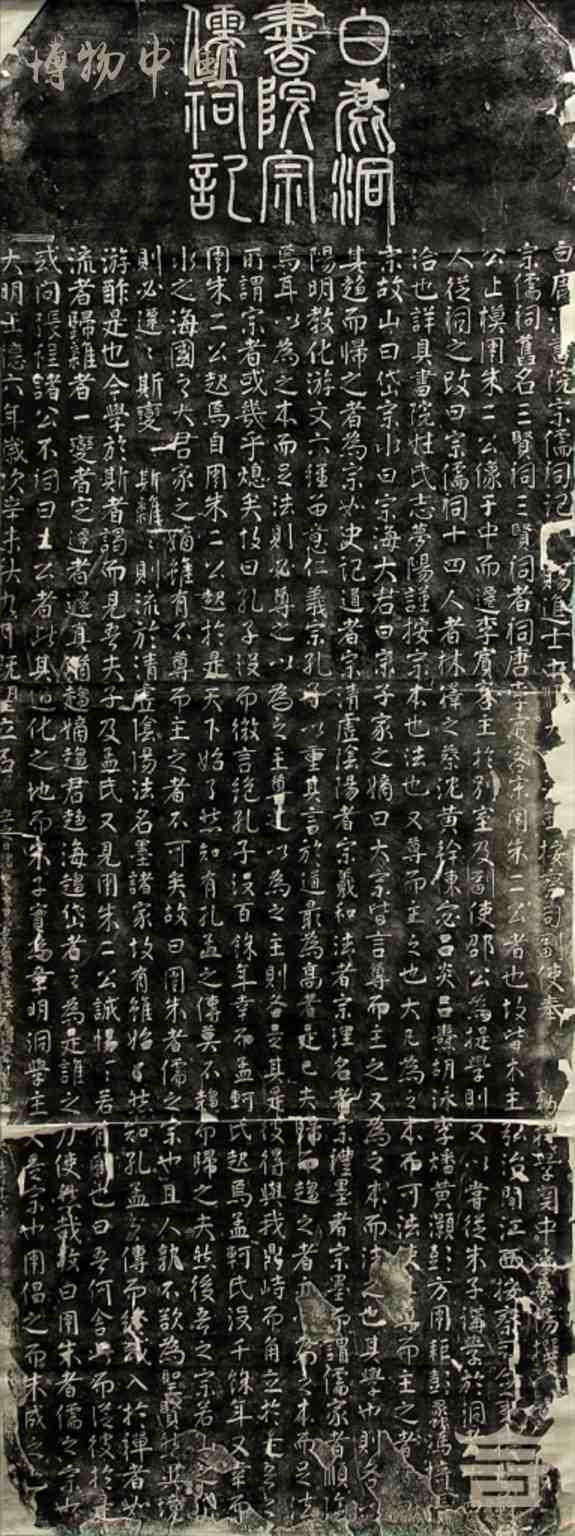 白鹿洞
書院宗
儒祠記
博物中國
白鹿洞書院宗儒祠記 賜進士 按察司副使奉 勑提學 夢陽撰
宗儒祠舊名三賢祠三賢祠者祠唐李 宋周朱二公者也故皆木主弘治間江西按察司
公止模周朱二公像于中而遷李賓客主於別室及副使邵公為提學則又以嘗從朱子講學於洞
人從祠之改曰宗儒祠十四人者林擇之蔡沈黃榦陳宓呂炎呂燾胡泳李燔黃灝彭方周耜彭蠡馮椅張
洽也詳具書院姓氏志夢陽謹按宗本也法也又尊而主之也大凡為之本而可法 尊而主之者
宗故山曰岱宗水曰宗海大君曰宗子家之嫡曰大宗皆言尊而主之又為之本而法之也其學也則各以
其趨而歸之者為宗如史記道者宗清虛陰陽者宗羲和法者宗理名者宗禮墨者宗墨而謂儒家者順陰
陽明教化游文六經留意仁義宗孔子以重其言於道最為高者是已夫歸而趨之者 以為之本而足法
焉耳以為之本而足法則必尊之以為之主尊之以為之主則各是其是彼得與我鼎峙而角立於
所謂宗者或幾乎熄矣故曰孔子沒而微言絕孔子沒百餘年幸而孟軻氏起焉孟軻氏沒千餘年又幸而
周朱二公起焉自周朱二公起於是天下始了然知有孔孟之傳莫不趨而歸之夫然後吾之宗若山之岱
水之海國之大君家之嫡雖有不尊而主之者不可矣故曰周朱者儒之宗也且人孰不欲為聖賢 其境
則必遷遷斯變 斯離離則流於清虛陰陽法名墨諸家故有雖始了然知孔孟之傳而終或入於禪者
游酢是也今學於斯者謁而見吾夫子及孟氏又見周朱二公誠惕惕若有 也曰吾何舍此而從彼於是
流者歸離者一變者定遷者還宜 趨嫡趨君趨海趨岱者之為是誰之力使然哉故曰周朱者儒之宗也
或問張程諸公不祠曰二公者此其過化之地而朱子實為重明洞學主 是宗也周倡之而朱成之
大明正德六年歲次辛未秋九月既望立石